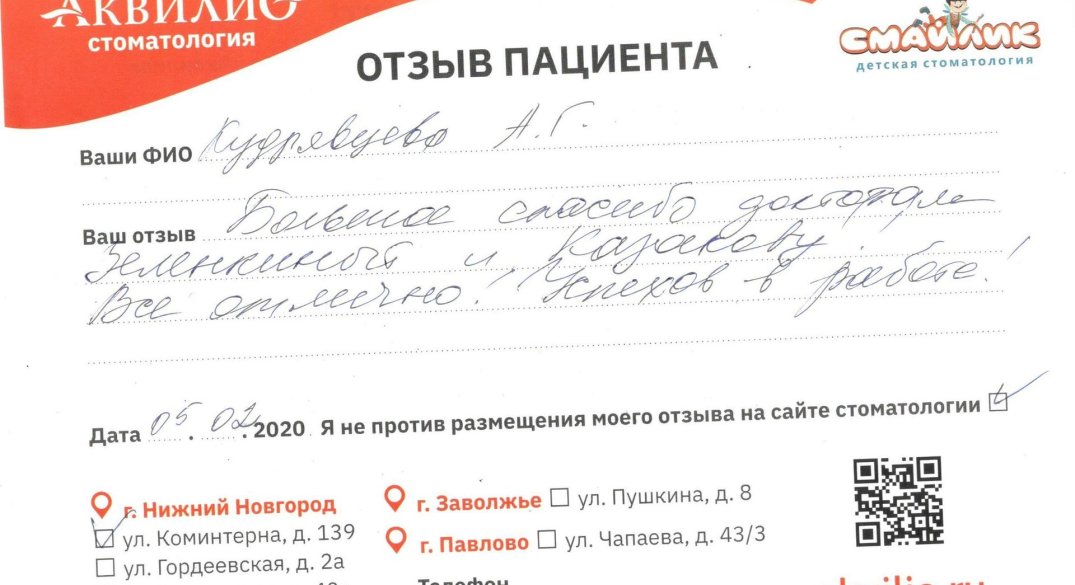 АКВИЛИО
стоматология
СМАЙЛИК
детская стоматология
ОТЗЫВ ПАЦИЕНТА
Ваши ФИО Кудрявцева А.Г.
Ваш отзыв Большое спасибо докторам
Зеленкиный и Казакову.
Все отлично! Успехов в работе!
Дата 05.02.2020 Я не против размещения моего отзыва на сайте стоматологии
г. Нижний Новгород
ул. Коминтерна, д. 139
ул. Гордеевская, д. 2а
г. Заволжье ул. Пушкина, д. 8
г. Павлово ул. Чапаева, д. 43/3
Телефон